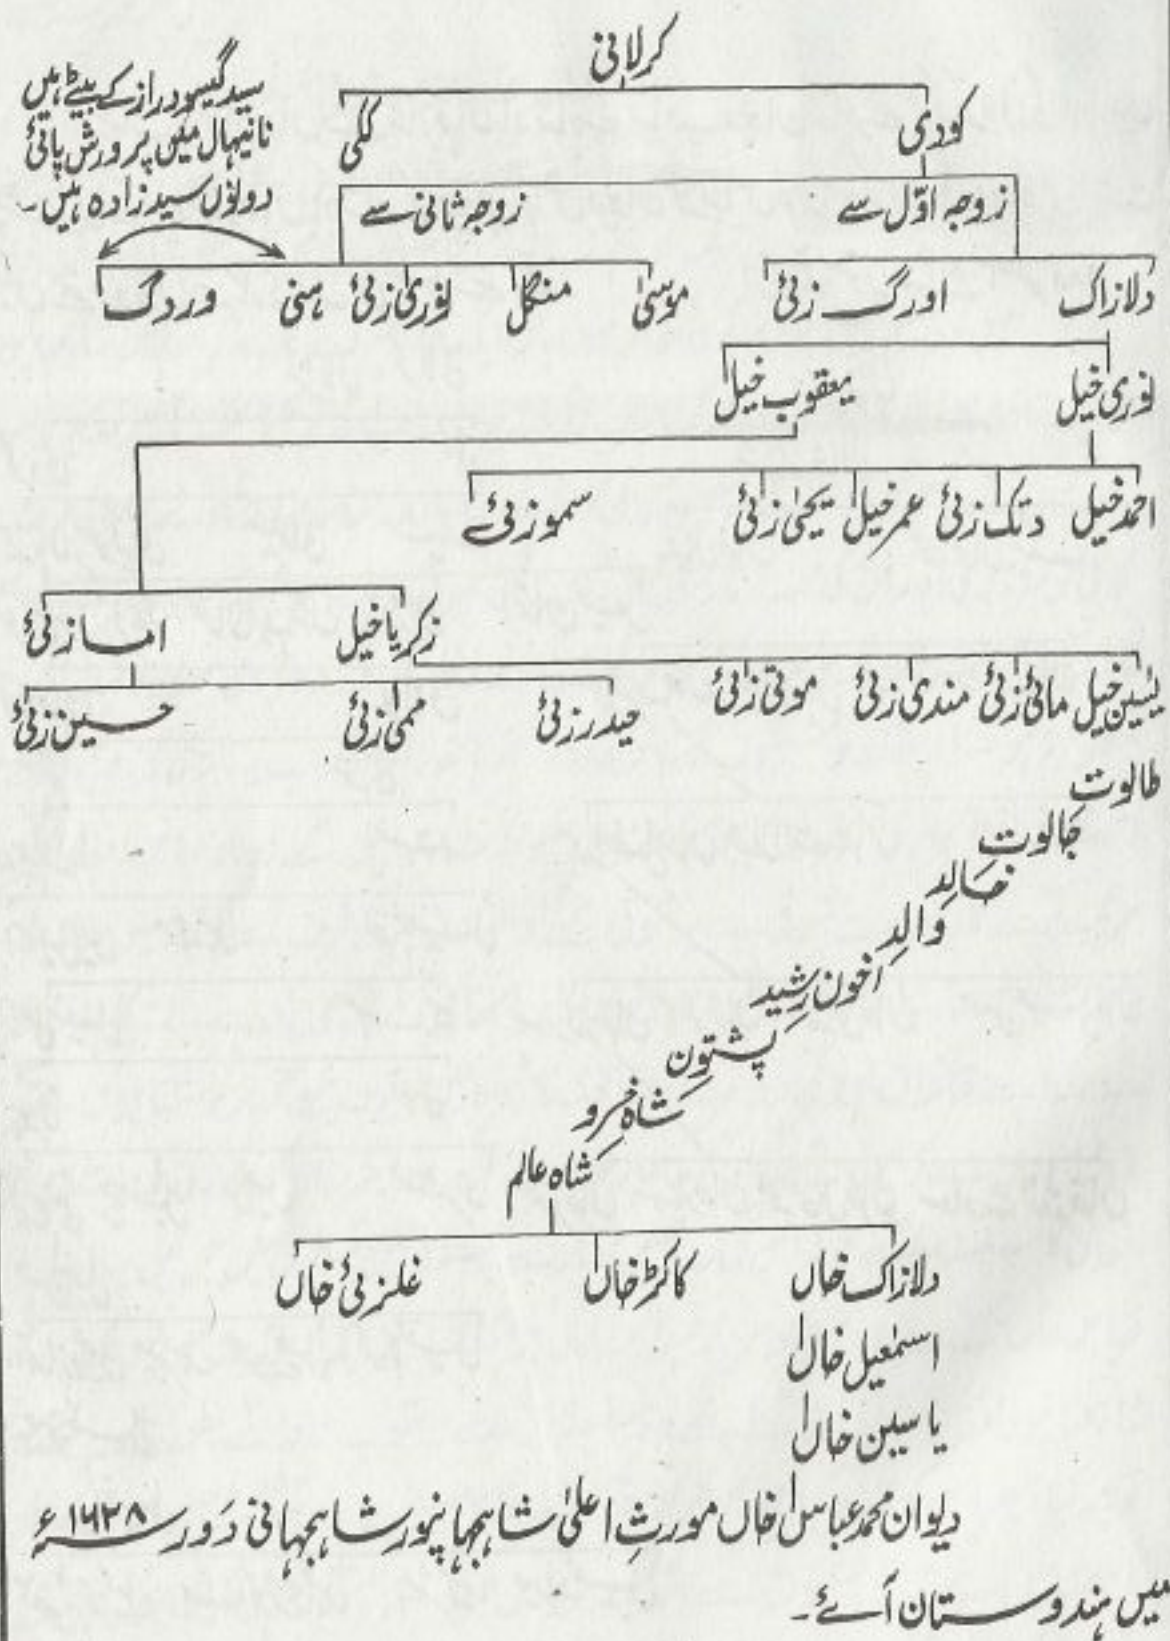 کرلانی
سید گیسودراز کے بیٹے ہیں
نانیہال میں پرورش پائی
دونوں سید زادہ ہیں۔
کودی
ککی
زوجہ اوّل سے
زوجہ ثانی سے
دلازاک اورگ زئی موسیٰ منگل لوری زئی ہنی وردگ
نوری خیل یعقوب خیل
احمد خیل دتک زئی عمر خیل یحیٰی زئی سموزئی
زکریا خیل امازئی
یٰسین خیل مائی زئی مندی زئی موتی زئی حیدرزئی ممی زئی حسین زئی
طالوت
جالوت
خالد
والد
اخون رشید
پشتون
شاہ خسرو
شاہ عالم
دلازاک خاں کاکڑ خاں غلزئی خاں
اسمٰعیل خاں
یاسین خاں
دیوان محمد عباس خاں مورثِ اعلیٰ شاہجہانپور شاہجہانی دَور سنہ ۱۶۳۸ء
میں ہندوستان آئے۔